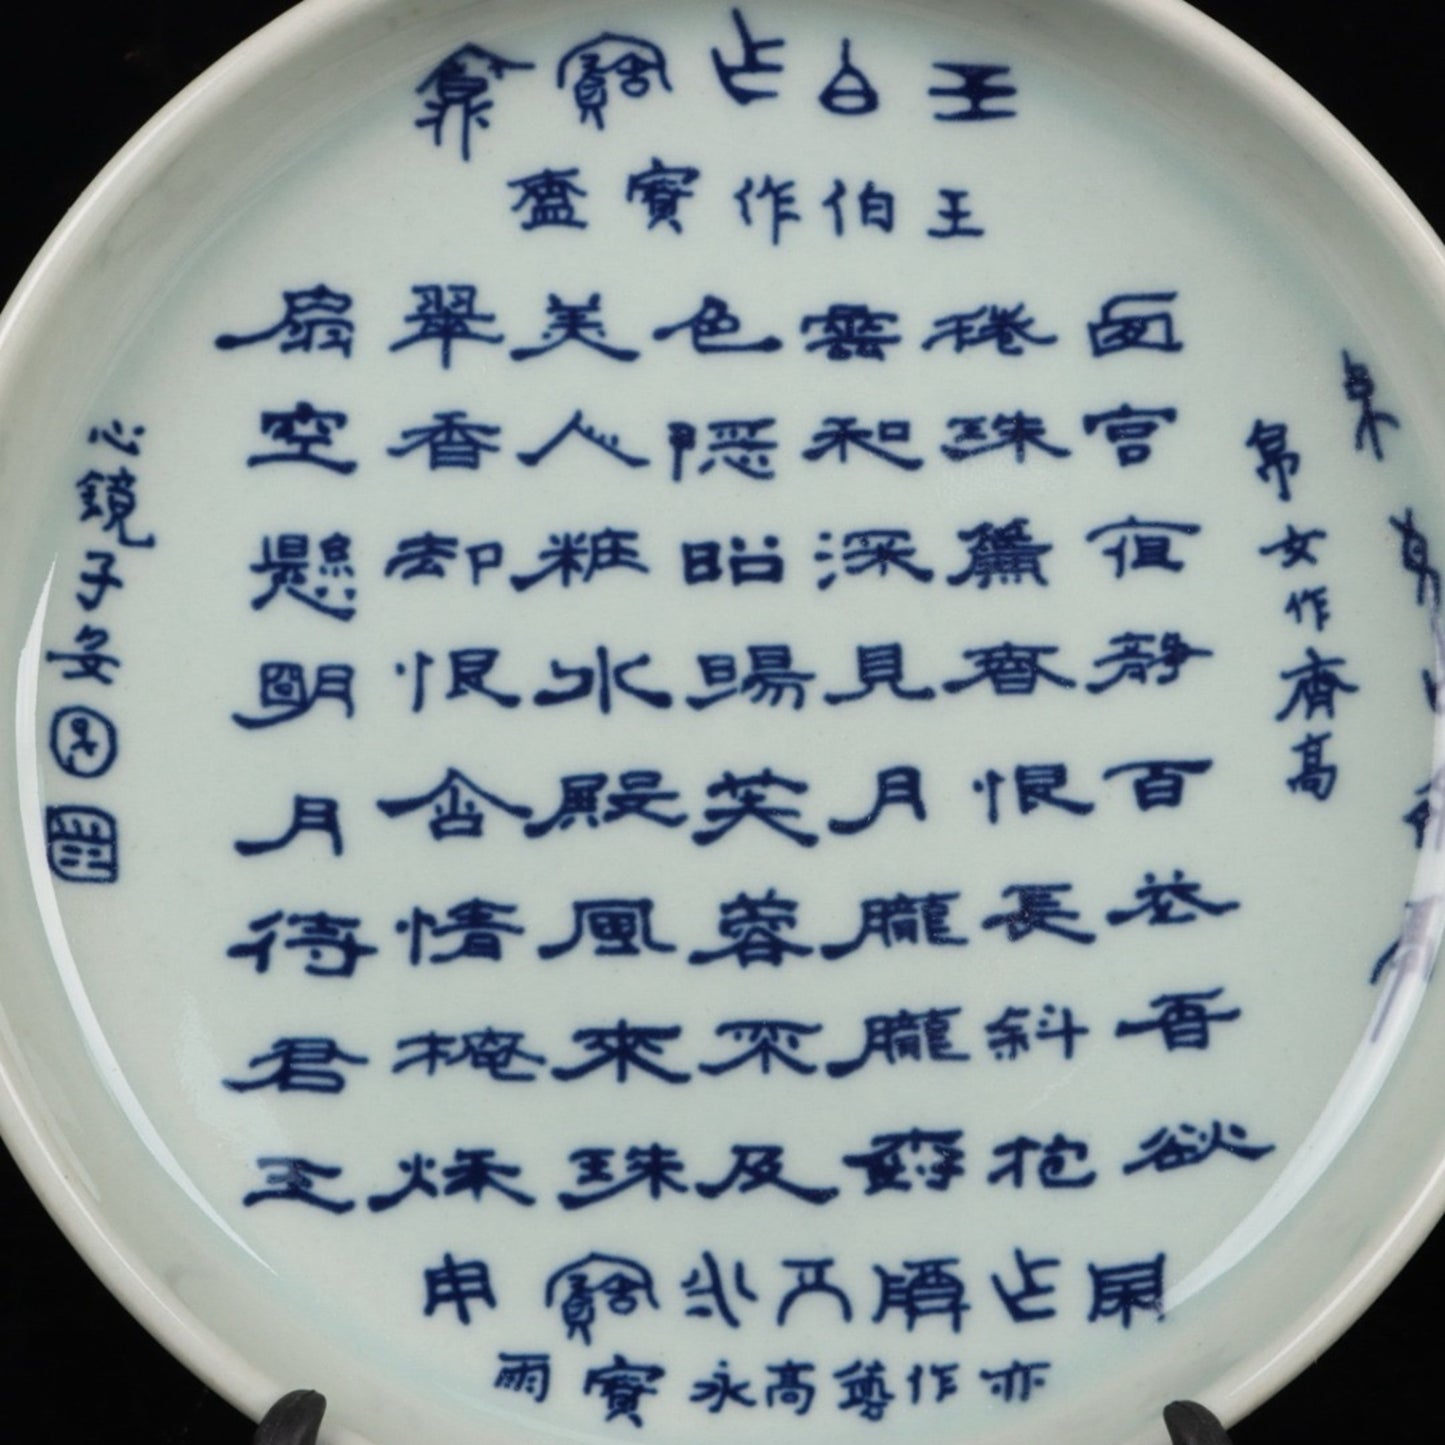 王伯作寶齍
帛女作齊鬲
西宮夜靜百花香欲
捲珠簾春恨長斜抱
雲和深見月朧朧樹
色隱昭陽芙蓉不及
美人粧水殿風來珠
翠香却恨含情掩秋
扇空懸明月待君王
亦作高永寶雨
心鏡子安